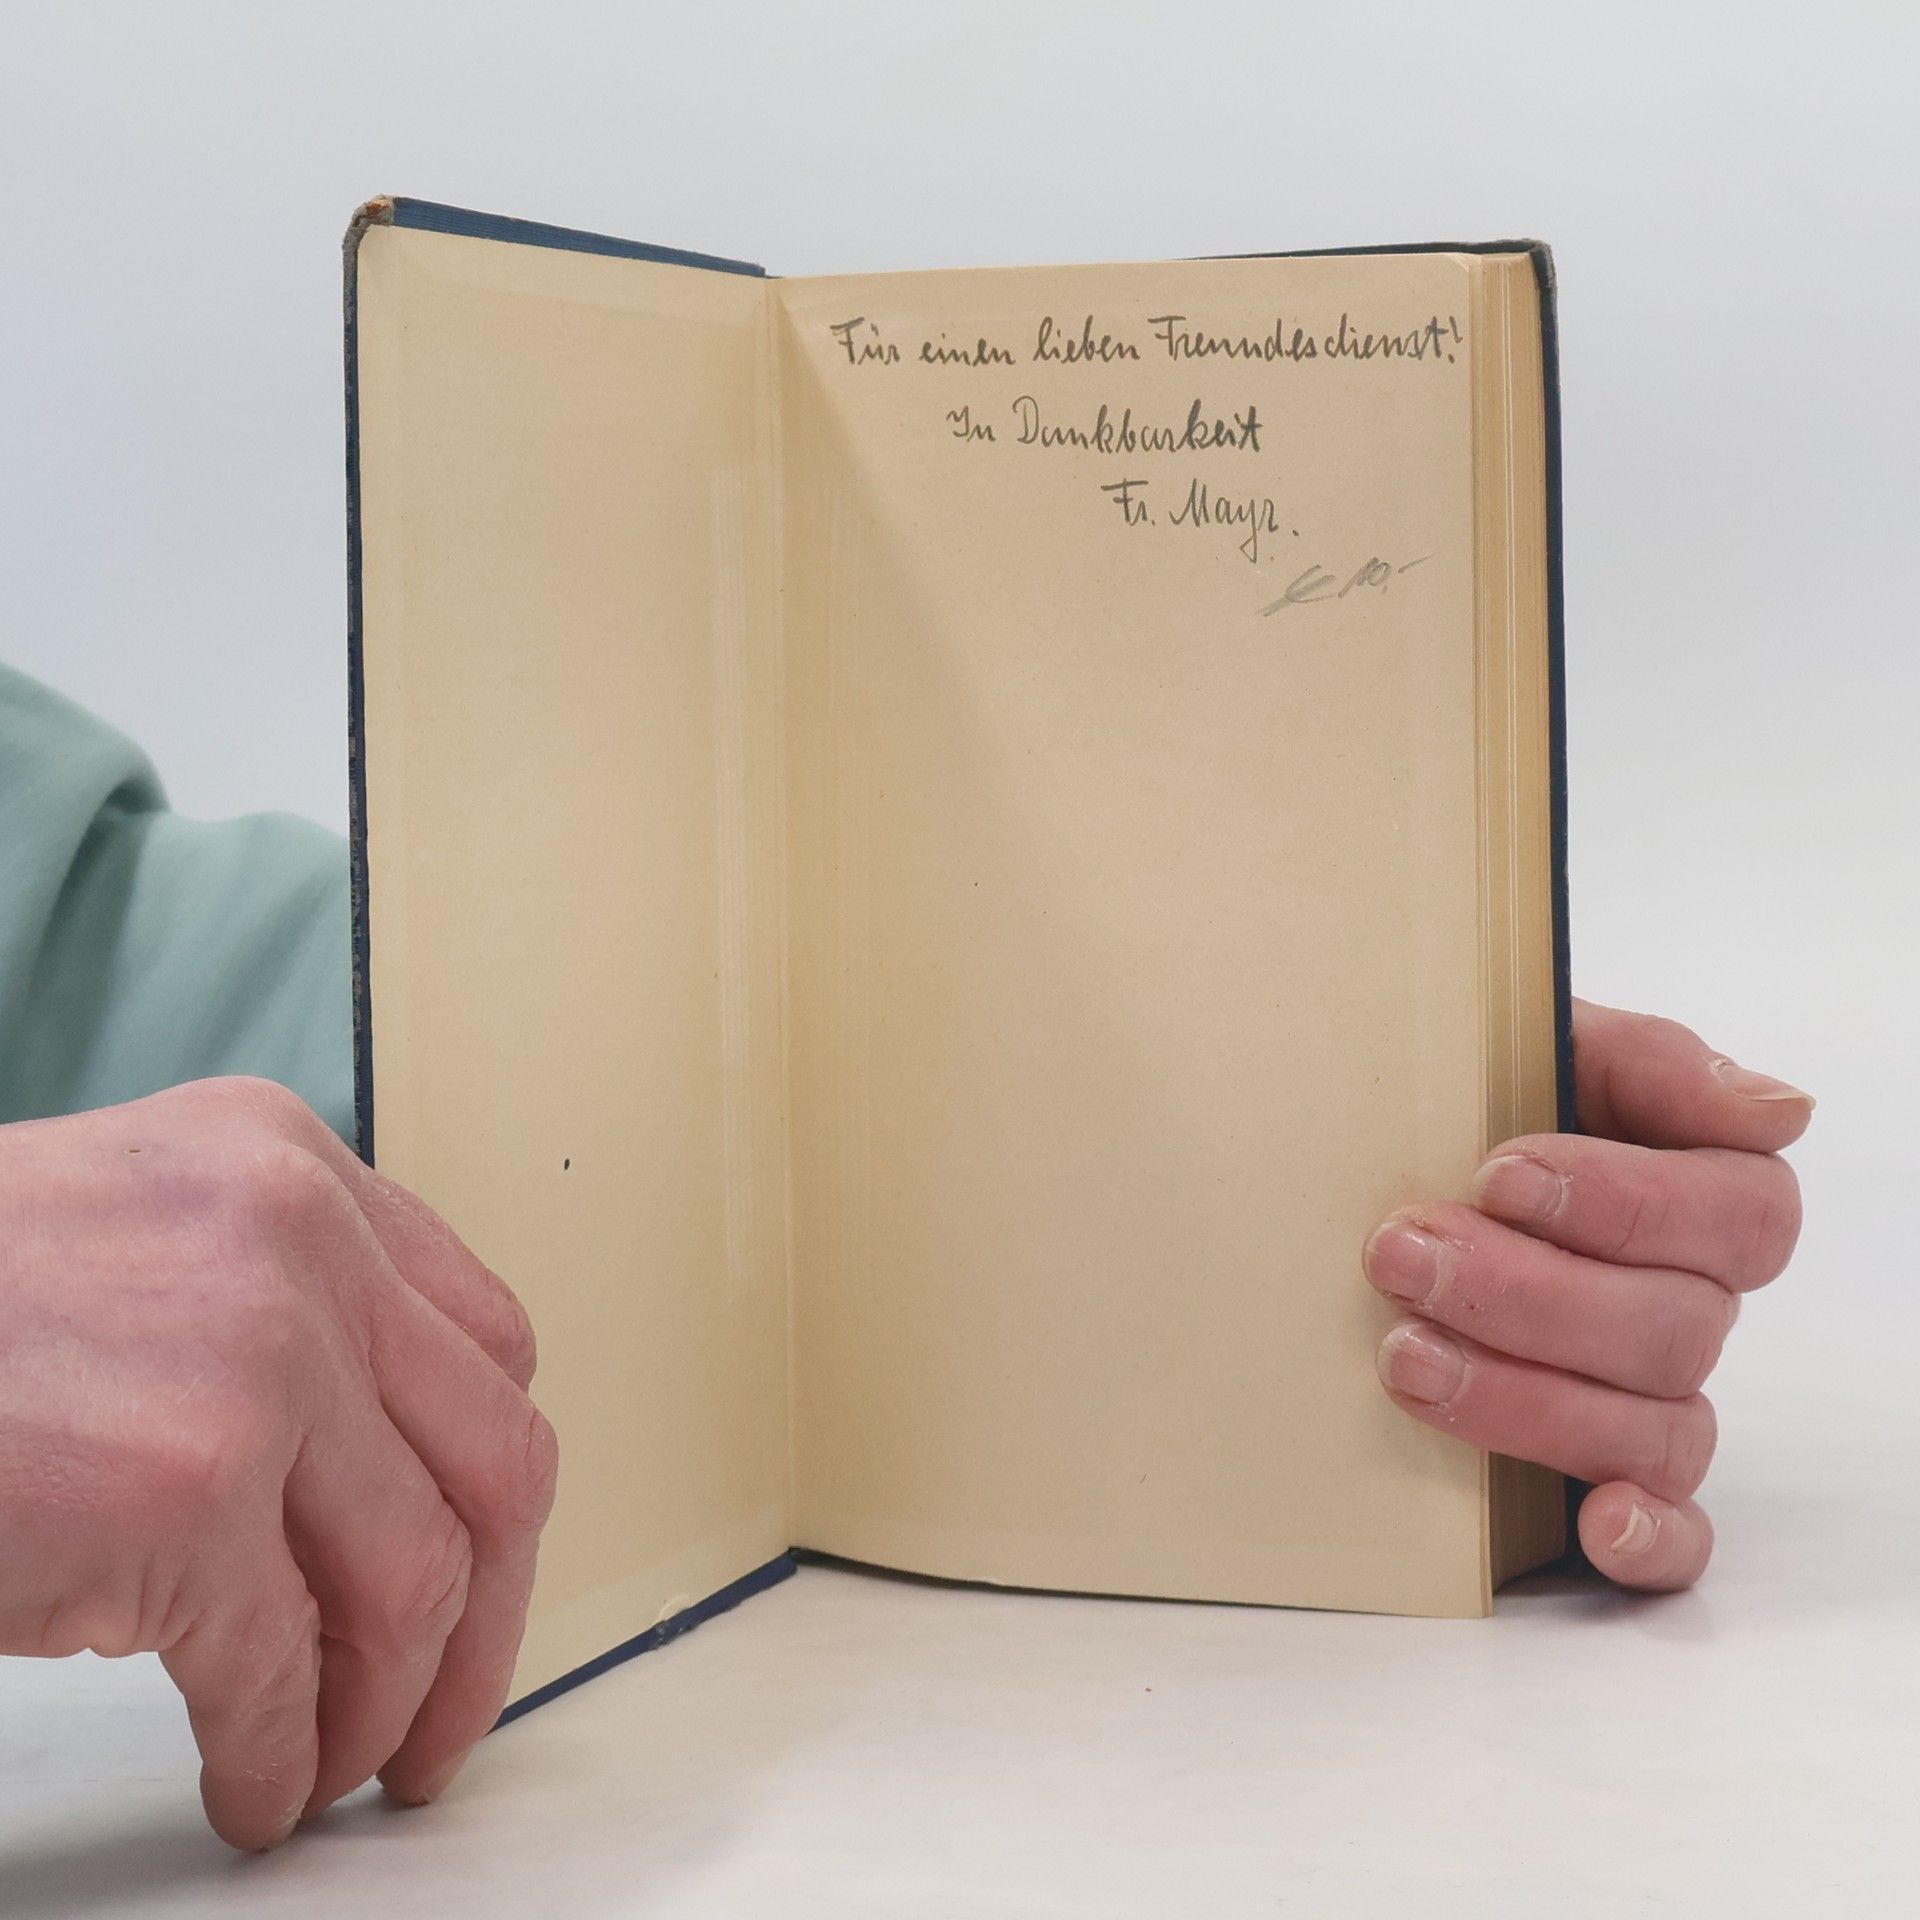 Für einen lieben Freundesdienst!
In Dankbarkeit
Fr. Mayr.
€ 10.-